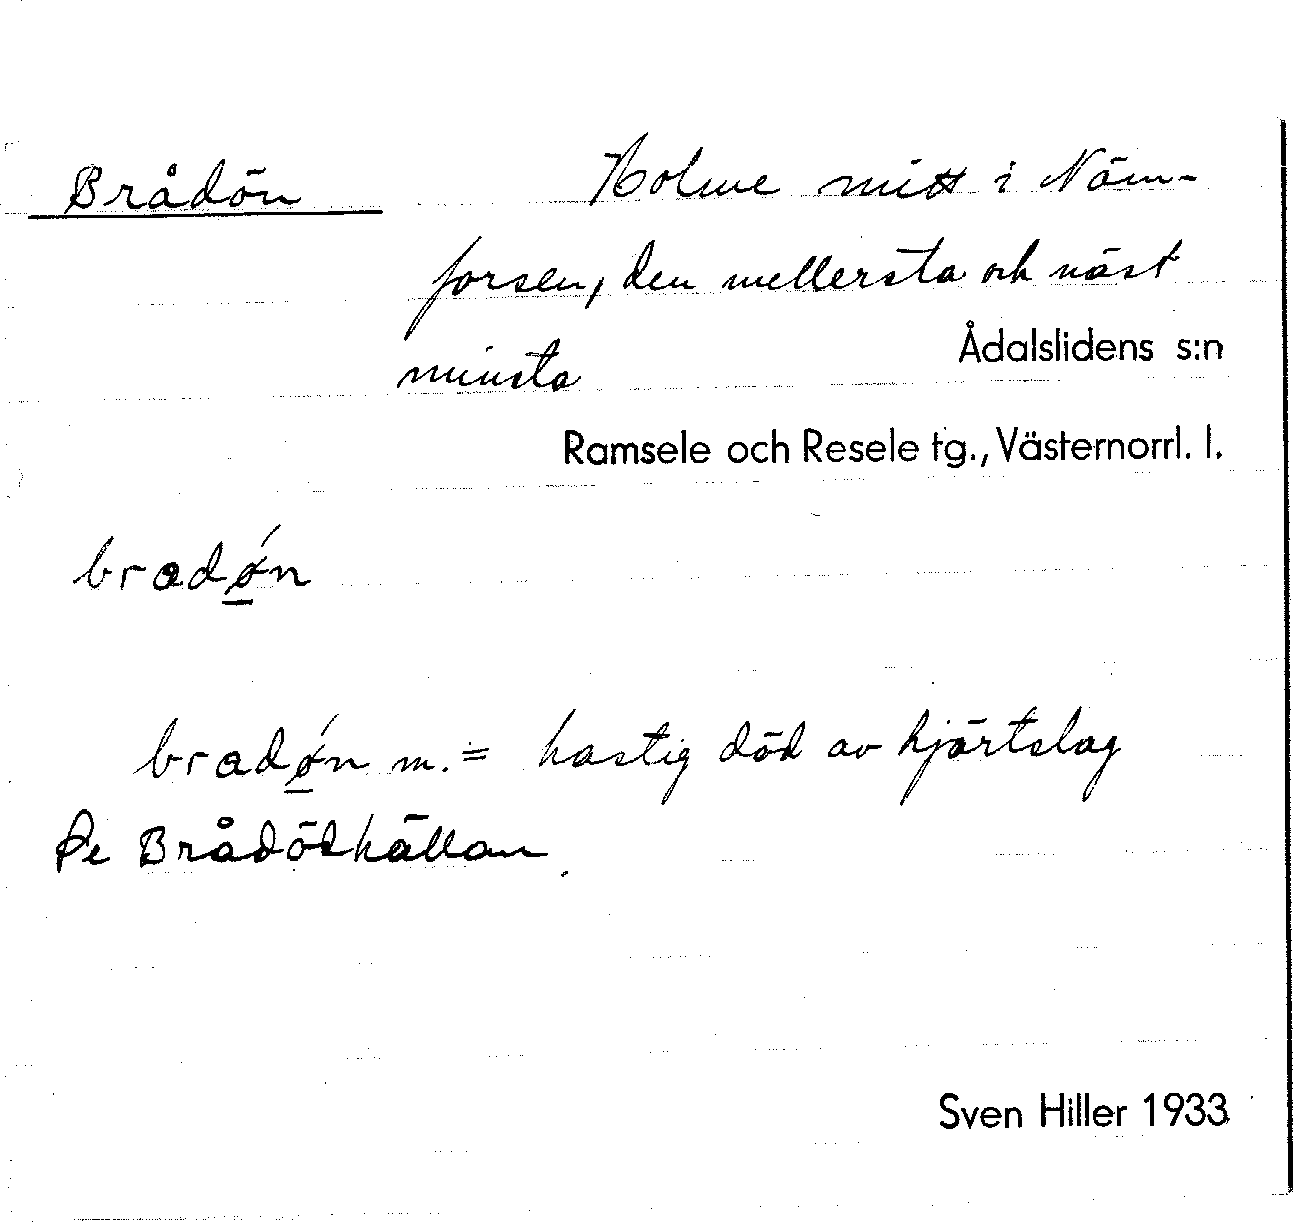 Brådön Holme mitt i Näm-
forsen, den mellersta och näst
minsta
Ådalslidens s:n
Ramsele och Resele tg., Västernorrl. l.
bradǿn
bradǿn m. = hastig död av hjärtslag
Se Brådödhällan.
Sven Hiller 1933